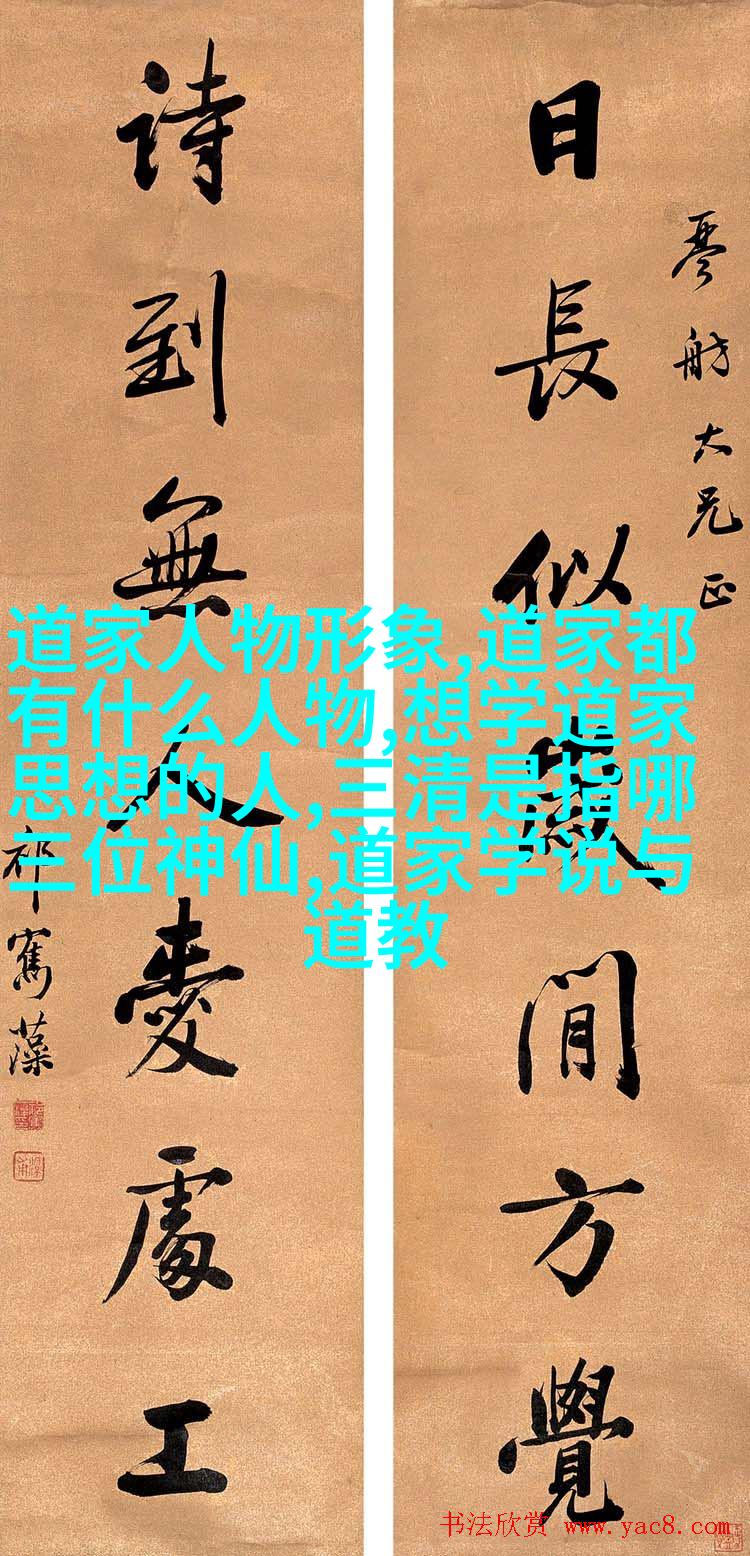 琴舫大兄正
日長似歲閒方覺
詩到無人愛處工
祁寯藻
道家人物形象,道家都
有什么人物,想学道家
思想的人,三清是指哪
三位神仙,道家学说与
道教
书法欣赏 www.yac8.com